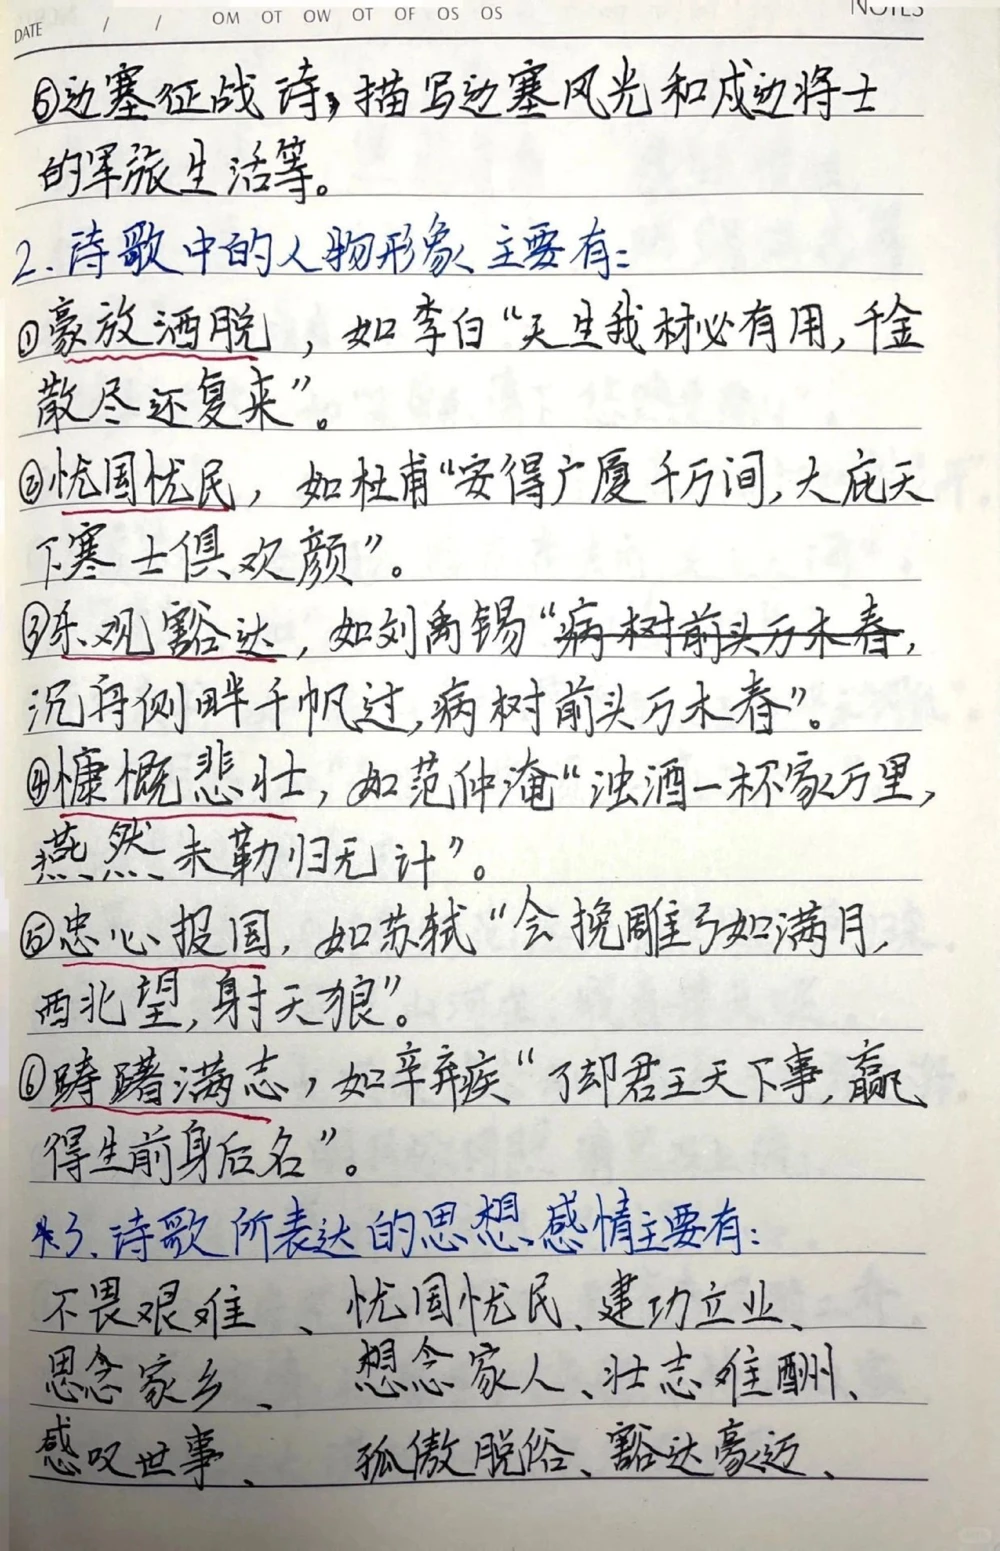 DATE / / OM OT OW OT OF OS OS NOTES
⑤边塞征战诗,描写边塞风光和戍边将士
的军旅生活等。
2.诗歌中的人物形象主要有:
①豪放洒脱,如李白“天生我材必有用,千金
散尽还复来”。
②忧国忧民,如杜甫“安得广厦千万间,大庇天
下寒士俱欢颜”。
③乐观豁达,如刘禹锡“病树前头万木春,
沉舟侧畔千帆过,病树前头万木春”。
④慷慨悲壮,如范仲淹“浊酒一杯家万里,
燕然未勒归无计”。
⑤忠心报国,如苏轼“会挽雕弓如满月,
西北望,射天狼”。
⑥踌躇满志,如辛弃疾“了却君王天下事,赢
得生前身后名”。
*3.诗歌所表达的思想感情主要有:
不畏艰难、忧国忧民、建功立业、
思念家乡、想念家人、壮志难酬、
感叹世事、孤傲脱俗、豁达豪迈、